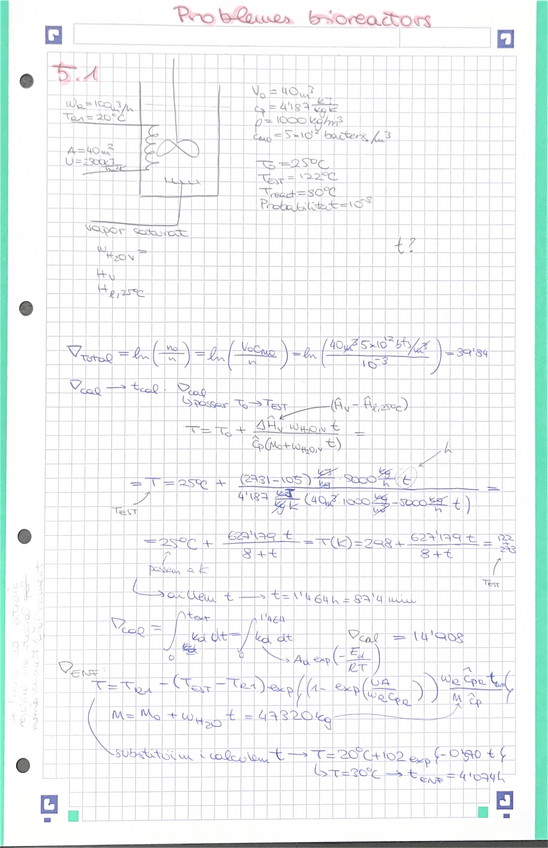 Problemes bioreactors
5.1
WR = 100 m³/h
TR1 = 20°C
A = 40 m²
vapor saturat
WH2OV =
HV
Hl,25°C
V0 = 40 m³
ρ = 1000 kg/m³
T0 = 25°C
TEST = 122°C
Treact = 30°C
Probabilitat = 10⁻³
t?
∇Total = ln(n0/n) = ln(V0CM0/n) = ln(40m³ 5×10¹² bts/m³ / 10⁻³) = 39'84
∇cal → tcal. ∇cal
↳ passar T0 → TEST
(ĤV − Ĥl,25°C)
T = T0 + ΔĤV · WH2O,V t / Ĉp(M0 + WH2O,V t) =
h
= T = 25°C + (2731−105) kJ/kg · 5000 kg/h (t) / 4'187 kJ/kg K (40m³ 1000 kg/m³ − 5000 kg/h t) =
TEST
= 25°C + 627'179 t / 8+t = T(K) = 298 + 627'179 t / 8+t =
passem a K
TEST
aïllem t → t = 1'464h = 87'4 min
∇cal = ∫0 test kd dt = ∫0 1'464 kd dt
∇cal = 14'908
Ad exp(−Ed/RT)
∇ENF:
T = TR1 − (TEST − TR1) exp{(1 − exp(UA/WRĈPR)) WRĈPR t / M Ĉp}
M = M0 + WH2O t = 47320 kg
substituïm i calculem t → T = 20°C + 102 exp{−0'590 t}
↳ T = 30°C → tENF = 4'074h